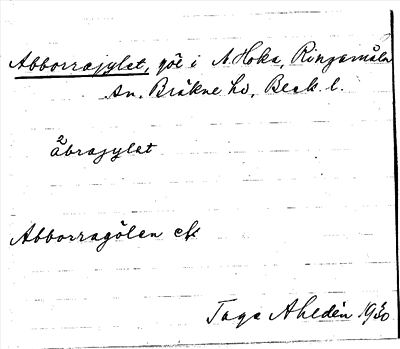 Abborrajylet, göl i N. Hoka, Ringamåla
sn. Bräkne hd, Blek. l.
2åbrajylet
Abborragölen ek
Tage Ahldén 1930